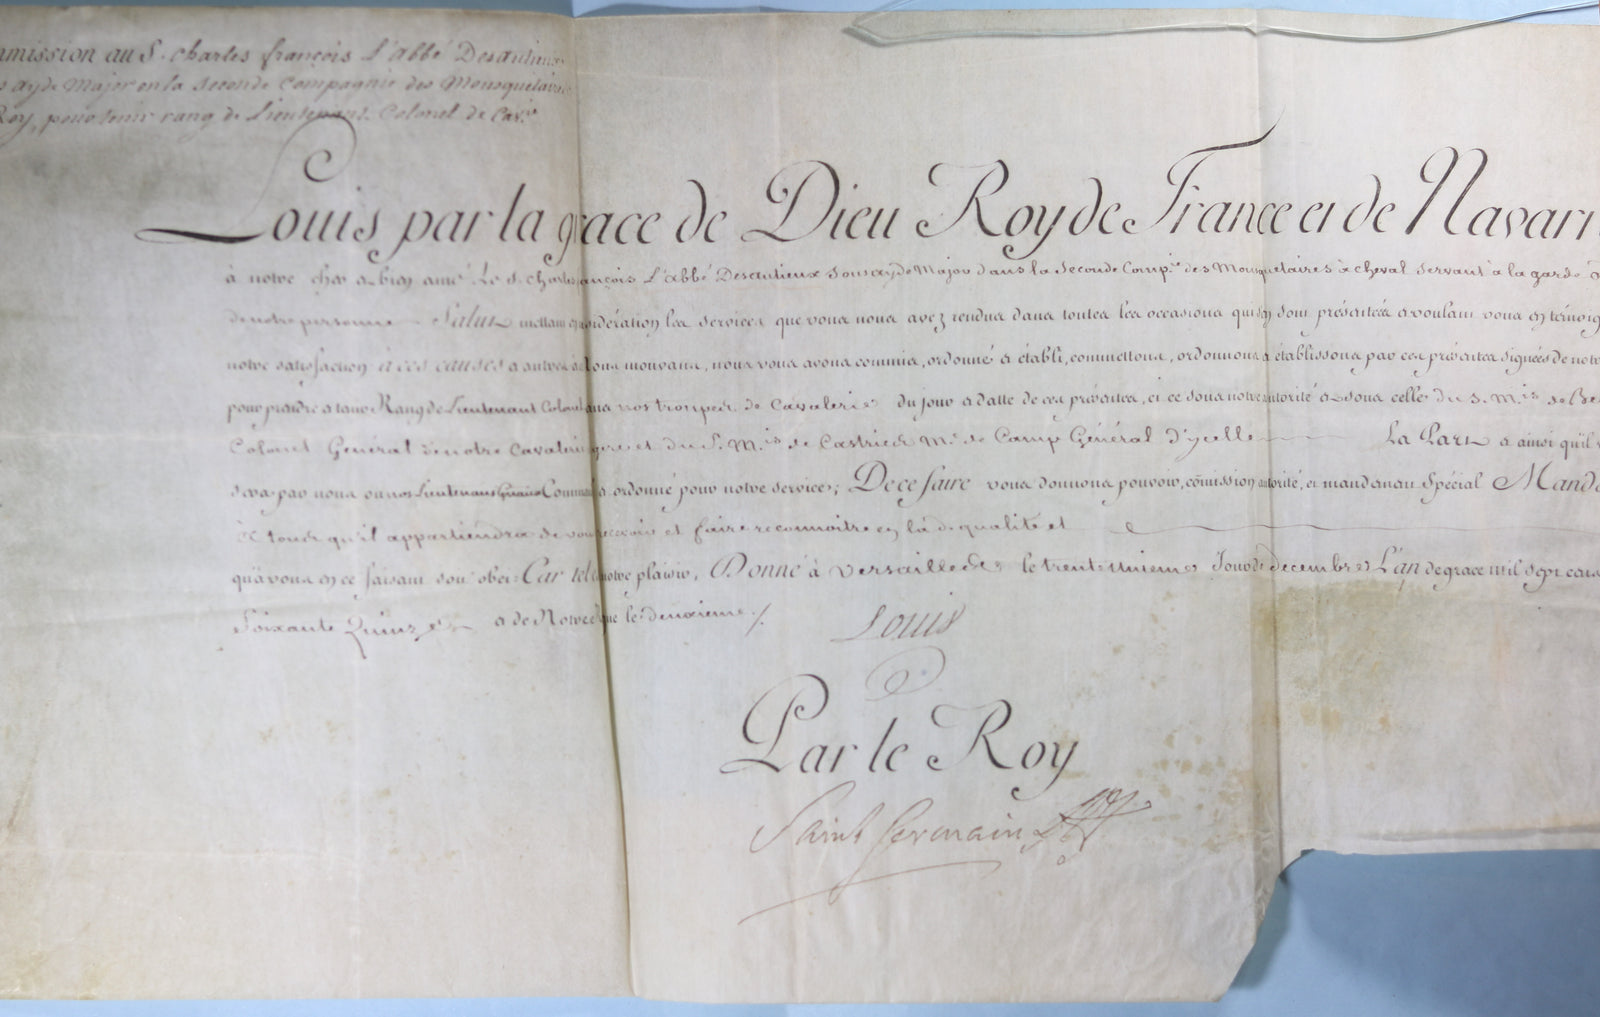 mmission au S. charles françois L'abbé Desautieux
s ayde Major en la Seconde Compagnie des Mousquetaires
Roy, pour tenir rang de Lieutenant Colonel de Cav.ie
Louis par la grace de Dieu Roy de France et de Navarr
à notre cher et bien amé Le S. charles ançois L'abbé Desautieux Sous ayde Major dans la Seconde Comp.ie des Mousquetaires à cheval servant à la garde
de notre personne Salut mettant considération les services que vous nous avez rendus dans toutes les occasions qui s'en sont présentées et voulant vous en témoig
notre satisfaction à ces causes et autres à ce Nous mouvans, nous vous avons commis, ordonné et établi, commettons, ordonnons et établissons par ces présentes signées de notr
pour prendre et tenir Rang de Lieutenant Colonel dans nos troupes de Cavalerie du jour et datte de ces présentes, et ce sous notre autorité et sous celle du S. M.is de Be
Colonel Général de notre Cavalerie gere et du S. M.is de Castries M.e de Camp Général d'ycelle La Part et ainsi qu'il
sera par nous ou nos Lieutenans Gnaux Command et ordonné pour notre service; De ce faire vous donnons pouvoir, com̃ission autorité, et mandement Spécial Mand
à tous qu'il appartiendra de vous recevoir et faire reconnoitre en lad. qualité et
qu'à vous en ce faisant soit obei: Car tel notre plaisir, Donné à Versailles le trente unieme Jour de decembre L'an de grace mil sept cens
Soixante Quinze et de Notre gne le deuxieme ./.
Louis
Par le Roy
Saint Germain